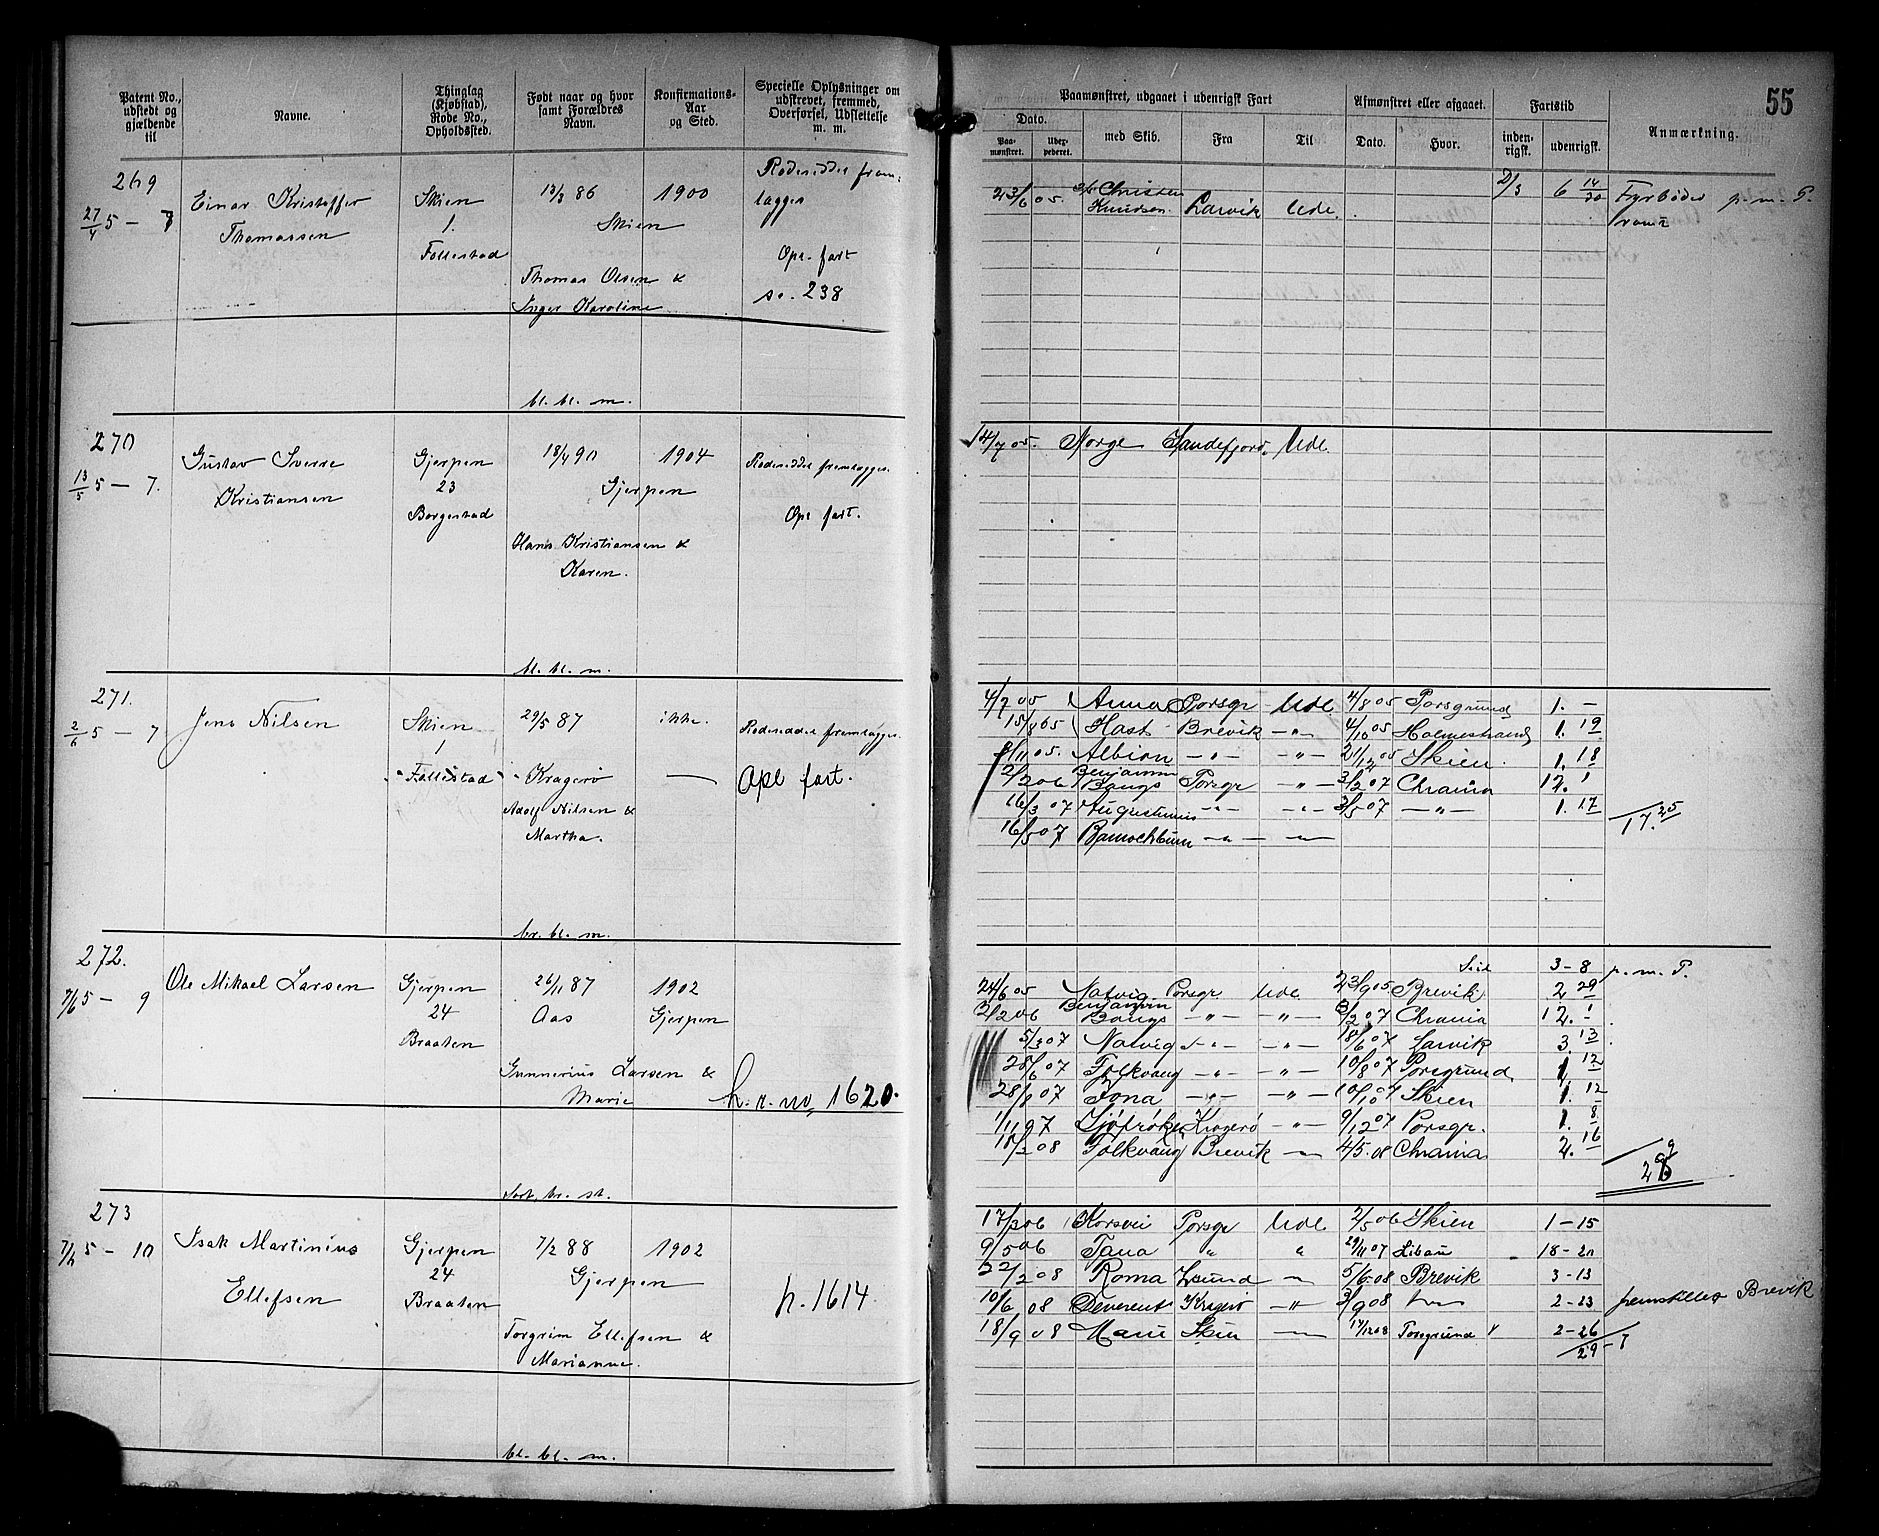 55
Patent No., udstedt og gjældende til
Navne.
Thinglag (Kjøbstad), Rode No., Opholdssted.
Født naar og hvor samt Forældres Navn.
Konfirmations-Aar og Sted.
Specielle Oplysninger om udskrevet, fremmed, Overførsel, Udslettelse m. m.
Paamønstret, udgaaet i udenrigsk Fart
Dato.
Paa-mønstret.
med Skib.
Fra
Til
Afmønstret eller afgaaet.
Dato.
Hvor.
Fartstid
inden-rigsk.
udenrigsk.
Anmærkning.
269
27/4 5 —
Einar Kristoffer
Thomassen
Skien
1.
Follestad
13/3 86
1900
Skien
Thomas Olsen &
Inger Karoline
Rodeseddel frem-
lagges
Opl. fart
so. 238
bl. bl. m.
23/6 05.
Christen
Knudsen.
Larvik
Udl.
2/3
6 14/30
Fyrbøder p. m. P.
270
13/5 5 — 7.
Gustav Sverre
Kristiansen
Gjerpen
23
Borgestad
18/4 90
1904
Gjerpen
Hans Kristiansen &
Karen.
Rodeseddel fremlagges.
Opl fart.
bl. bl. m.
14/7 05.
Norge
Sandefjord.
Udl.
271.
2/6 5 — 7
Jens Nilsen
Skien
1
Follestad
29/5 87
Kragerø
Adolf Nilsen &
Martha.
ikke.
Rodeseddel fremlagges.
Opl fart.
br. bl. m.
4/7 05 Anna Porsgr Udl 4/8 05 Porsgrund 1. —
15/8 05 Hast Brevik —"— 4/10 05 Holmestrand 1. 19
/11 05. Albion —"— —"— 21/12 05 Skien. 1. 18
2/2 06 Benjamin Bangs Porsgr —"— 3/2 07 Chrania 12. 1
16/3 07 Augustinus —"— —"— 3/5 07 —"— 1. 17
17. 25
16/5 07 Bannockburn —"— —"—
272.
7/6 5 — 9
Ole Mikael Larsen
Gjerpen
24
Braaten
26/11 87
Aas
1902
Gjerpen
Gunnerius Larsen &
Marie
h. r. no, 1620.
Sort, br. st.
3 – 8 p. m. P.
24/6 05 Natvig Porsgr Udl. 23/9 05 Brevik 2 29
2/2 06 Benjamin Bangs —"— —"— 3/2 07 Chrania 12. 1
5/3 07 Natvig —"— —"— 18/6 07 Larvik 3. 13
28/6 07 Folkvang —"— —"— 10/8 07 Porsgrund 1. 12
28/8 07 Jona —"— —"— 10/10 07 Skien 1. 12
1/11 07 Kragerø —"— 9/12 07 Porsgr. 1. 8
18/2 08 Folkvang Brevik —"— 4/5. 08 Chrania 2. 16
273
5 — 10
Isak Martinius
Ellefsen
Gjerpen
24
Braaten
7/2 88
1902
Gjerpen
Torgrim Ellefsen &
Marianne.
h. 1614
bl. bl. m.
17/2 06 Korsvei Porsgr Udl 2/5 06 Skien 1 – 15
9/5 06 Tana " " 29/11 07 Libau 18 – 20
22/2 08 Roma —"— 5/6 08 Brevik 3 – 13
10/6 08 Deverent Kragerø —"— 3/9 08 2 – 23 fremstilles Brevik
18/9 08 Marie Skien —"— 14/12 08 Porsgrund 2 – 26
29 – 7